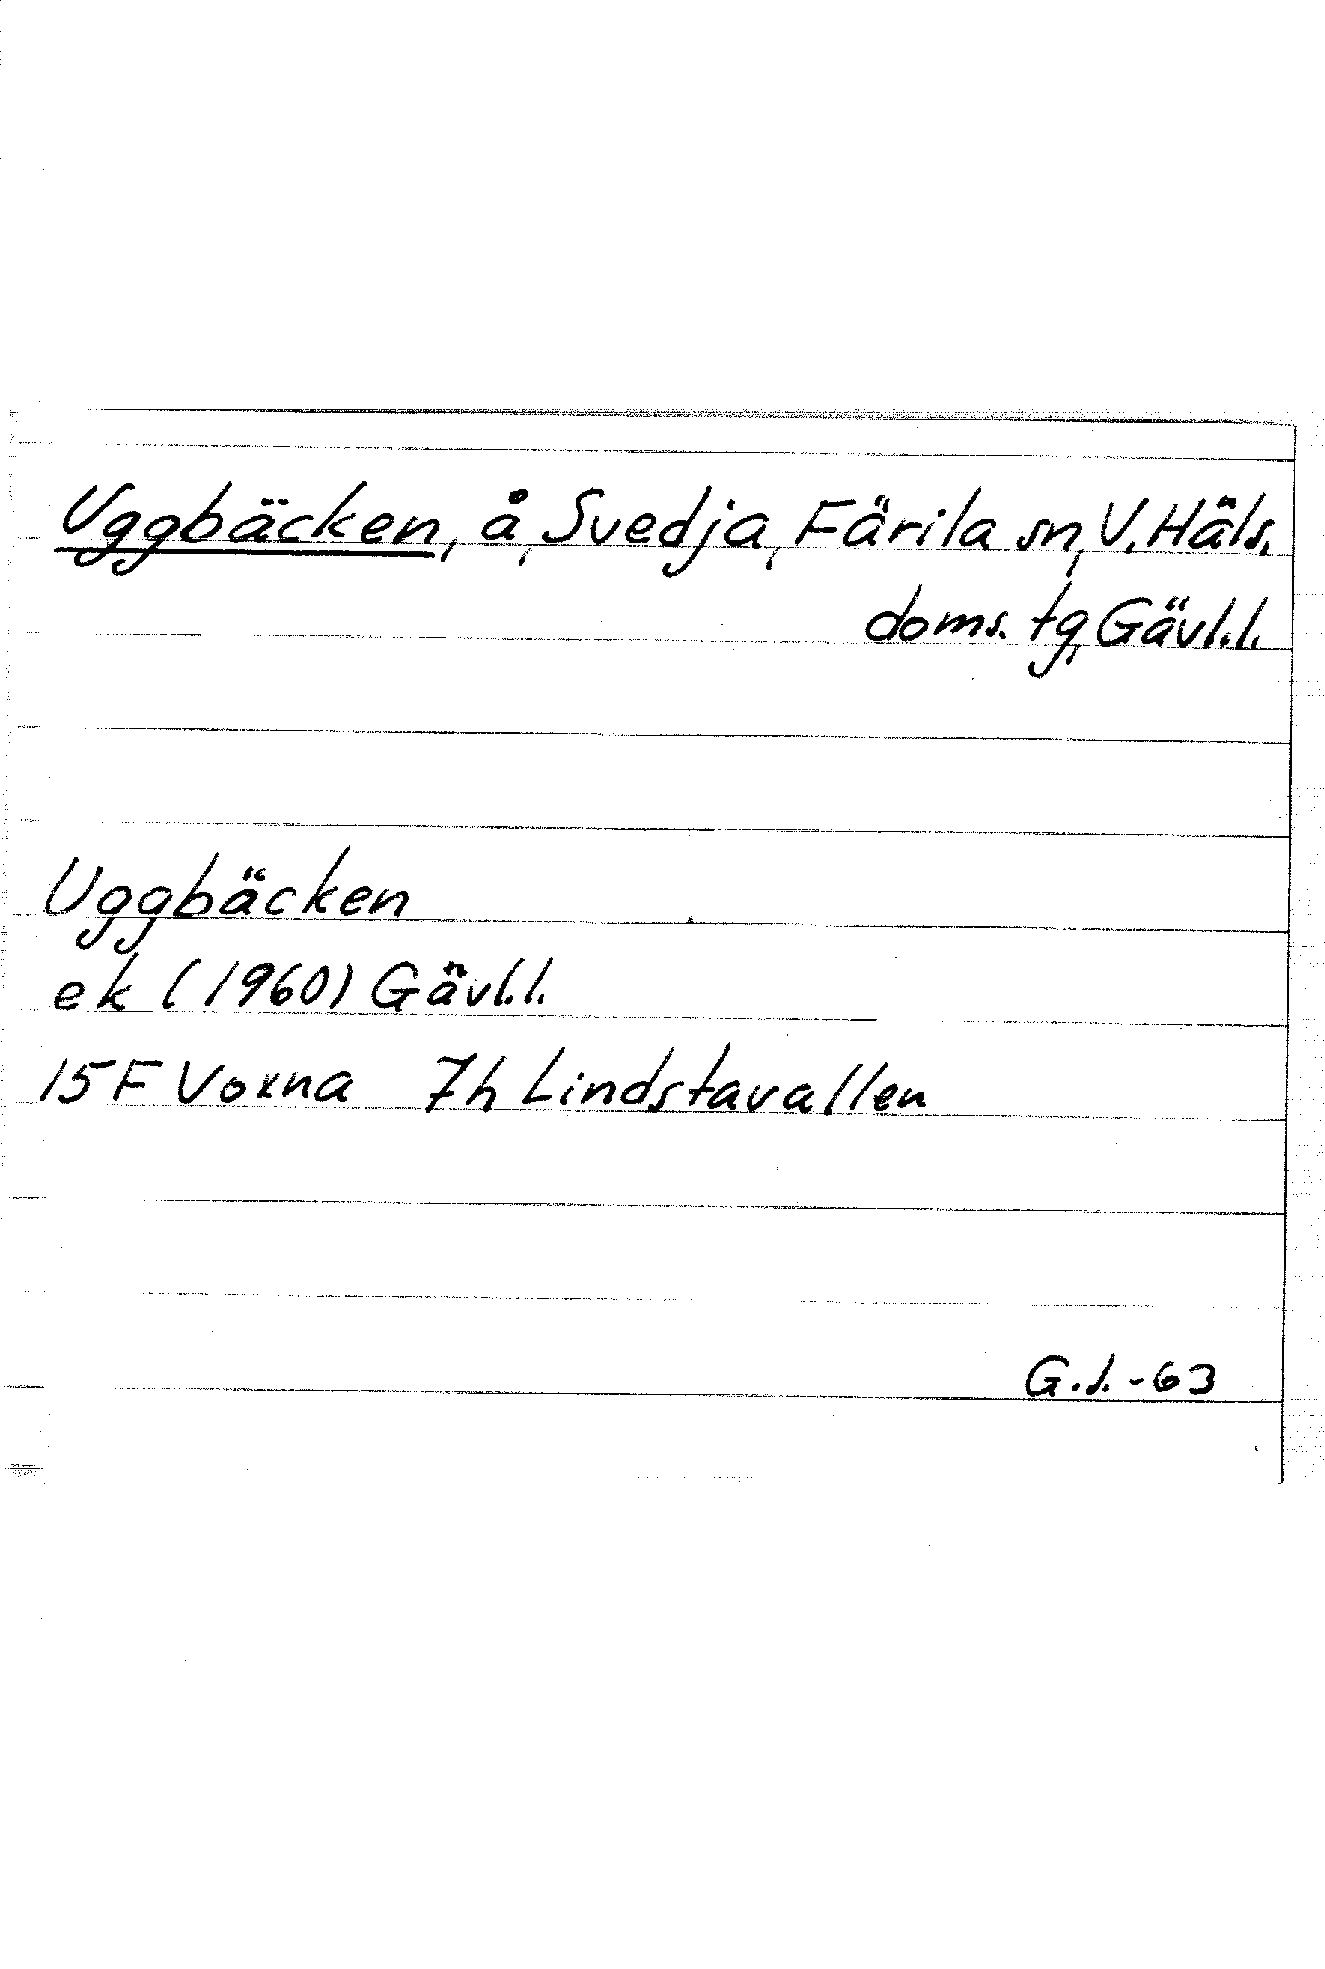 Uggbäcken, å, Svedja, Färila sn, V. Häls.
doms. tg, Gävl.l.
Uggbäcken
ek (1960) Gävl.l.
15F Voxna 7h Lindstavallen
G.l.-63